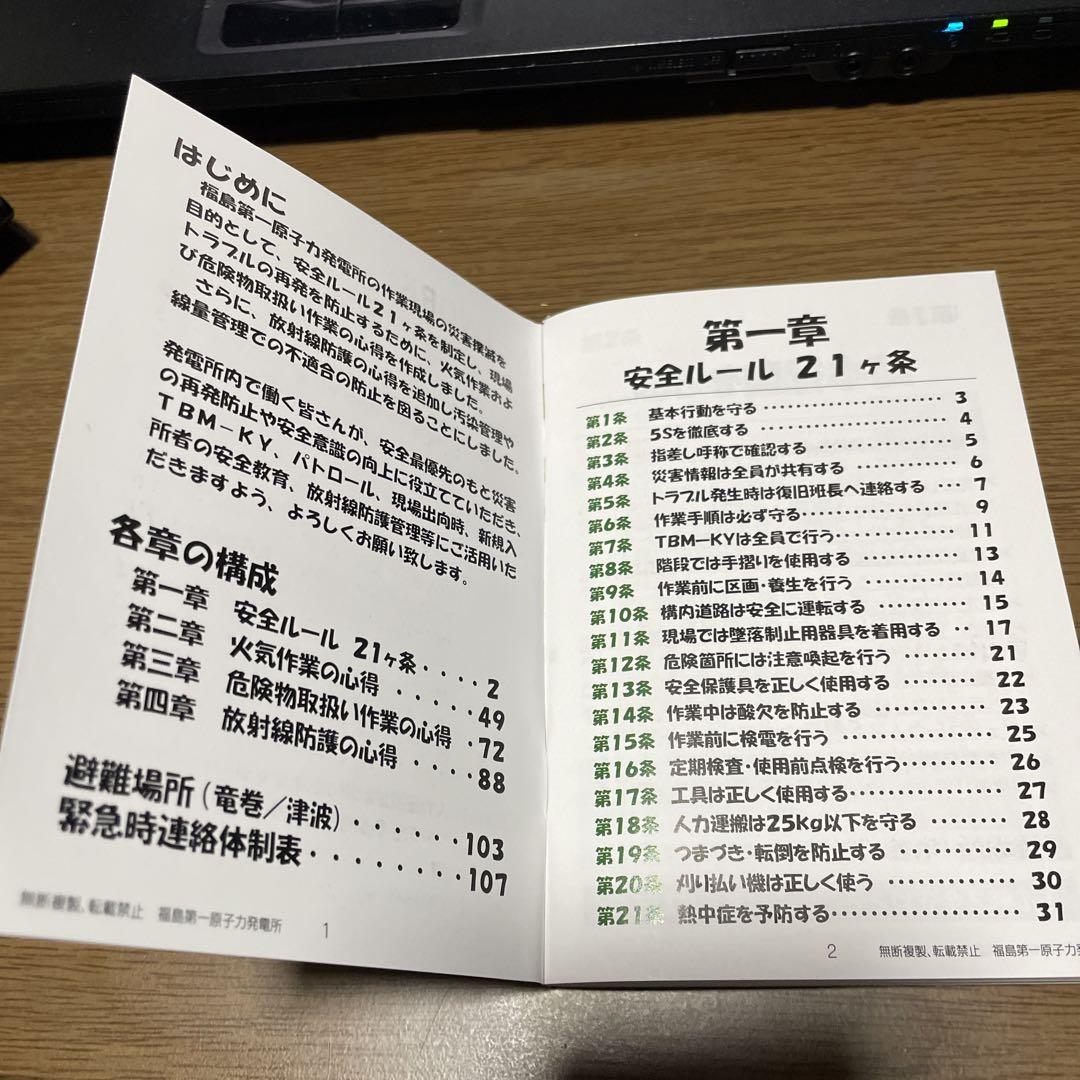 はじめに
福島第一原子力発電所の作業現場の災害撲滅を
目的として、安全ルール21ヶ条を制定し、現場
トラブルの再発を防止するために、火気作業およ
び危険物取扱い作業の心得を作成しました。
さらに、放射線防護の心得を追加し汚染管理や
線量管理での不適合の防止を図ることにしました。
発電所内で働く皆さんが、安全最優先のもと災害
の再発防止や安全意識の向上に役立てていただき、
TBM-KY、パトロール、現場出向時、新規入
所者の安全教育、放射線防護管理等にご活用いた
だきますよう、よろしくお願い致します。
各章の構成
第一章 安全ルール 21ヶ条・・・・2
第二章 火気作業の心得 ・・・・・49
第三章 危険物取扱い作業の心得 ・72
第四章 放射線防護の心得 ・・・・88
避難場所(竜巻/津波)・・・・・・103
緊急時連絡体制表・・・・・・・107
無断複製、転載禁止 福島第一原子力発電所 1
第一章
安全ルール 21ヶ条
第1条 基本行動を守る ・・・・・・・・・・ 3
第2条 5Sを徹底する ・・・・・・・・・・ 4
第3条 指差し呼称で確認する ・・・・・・・・ 5
第4条 災害情報は全員が共有する ・・・・・・ 6
第5条 トラブル発生時は復旧班長へ連絡する ・・・ 7
第6条 作業手順は必ず守る・・・・・・・・・ 9
第7条 TBM-KYは全員で行う・・・・・・・・ 11
第8条 階段では手摺りを使用する ・・・・・・ 13
第9条 作業前に区画・養生を行う ・・・・・・ 14
第10条 構内道路は安全に運転する ・・・・・・ 15
第11条 現場では墜落制止用器具を着用する ・・ 17
第12条 危険箇所には注意喚起を行う ・・・・・ 21
第13条 安全保護具を正しく使用する ・・・・・ 22
第14条 作業中は酸欠を防止する ・・・・・・・ 23
第15条 作業前に検電を行う ・・・・・・・・ 25
第16条 定期検査・使用前点検を行う・・・・・・ 26
第17条 工具は正しく使用する・・・・・・・・ 27
第18条 人力運搬は25kg以下を守る ・・・・・ 28
第19条 つまづき・転倒を防止する ・・・・・・ 29
第20条 刈り払い機は正しく使う ・・・・・・・ 30
第21条 熱中症を予防する・・・・・・・・・・ 31
2 無断複製、転載禁止 福島第一原子力